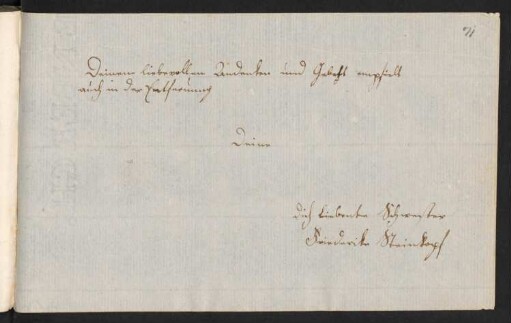 71
Deinem liebevollen Andenken und Gebeht empfielt
auch in der Entfernung
Deine
dich liebente Schwester
Friederika Steinkopf